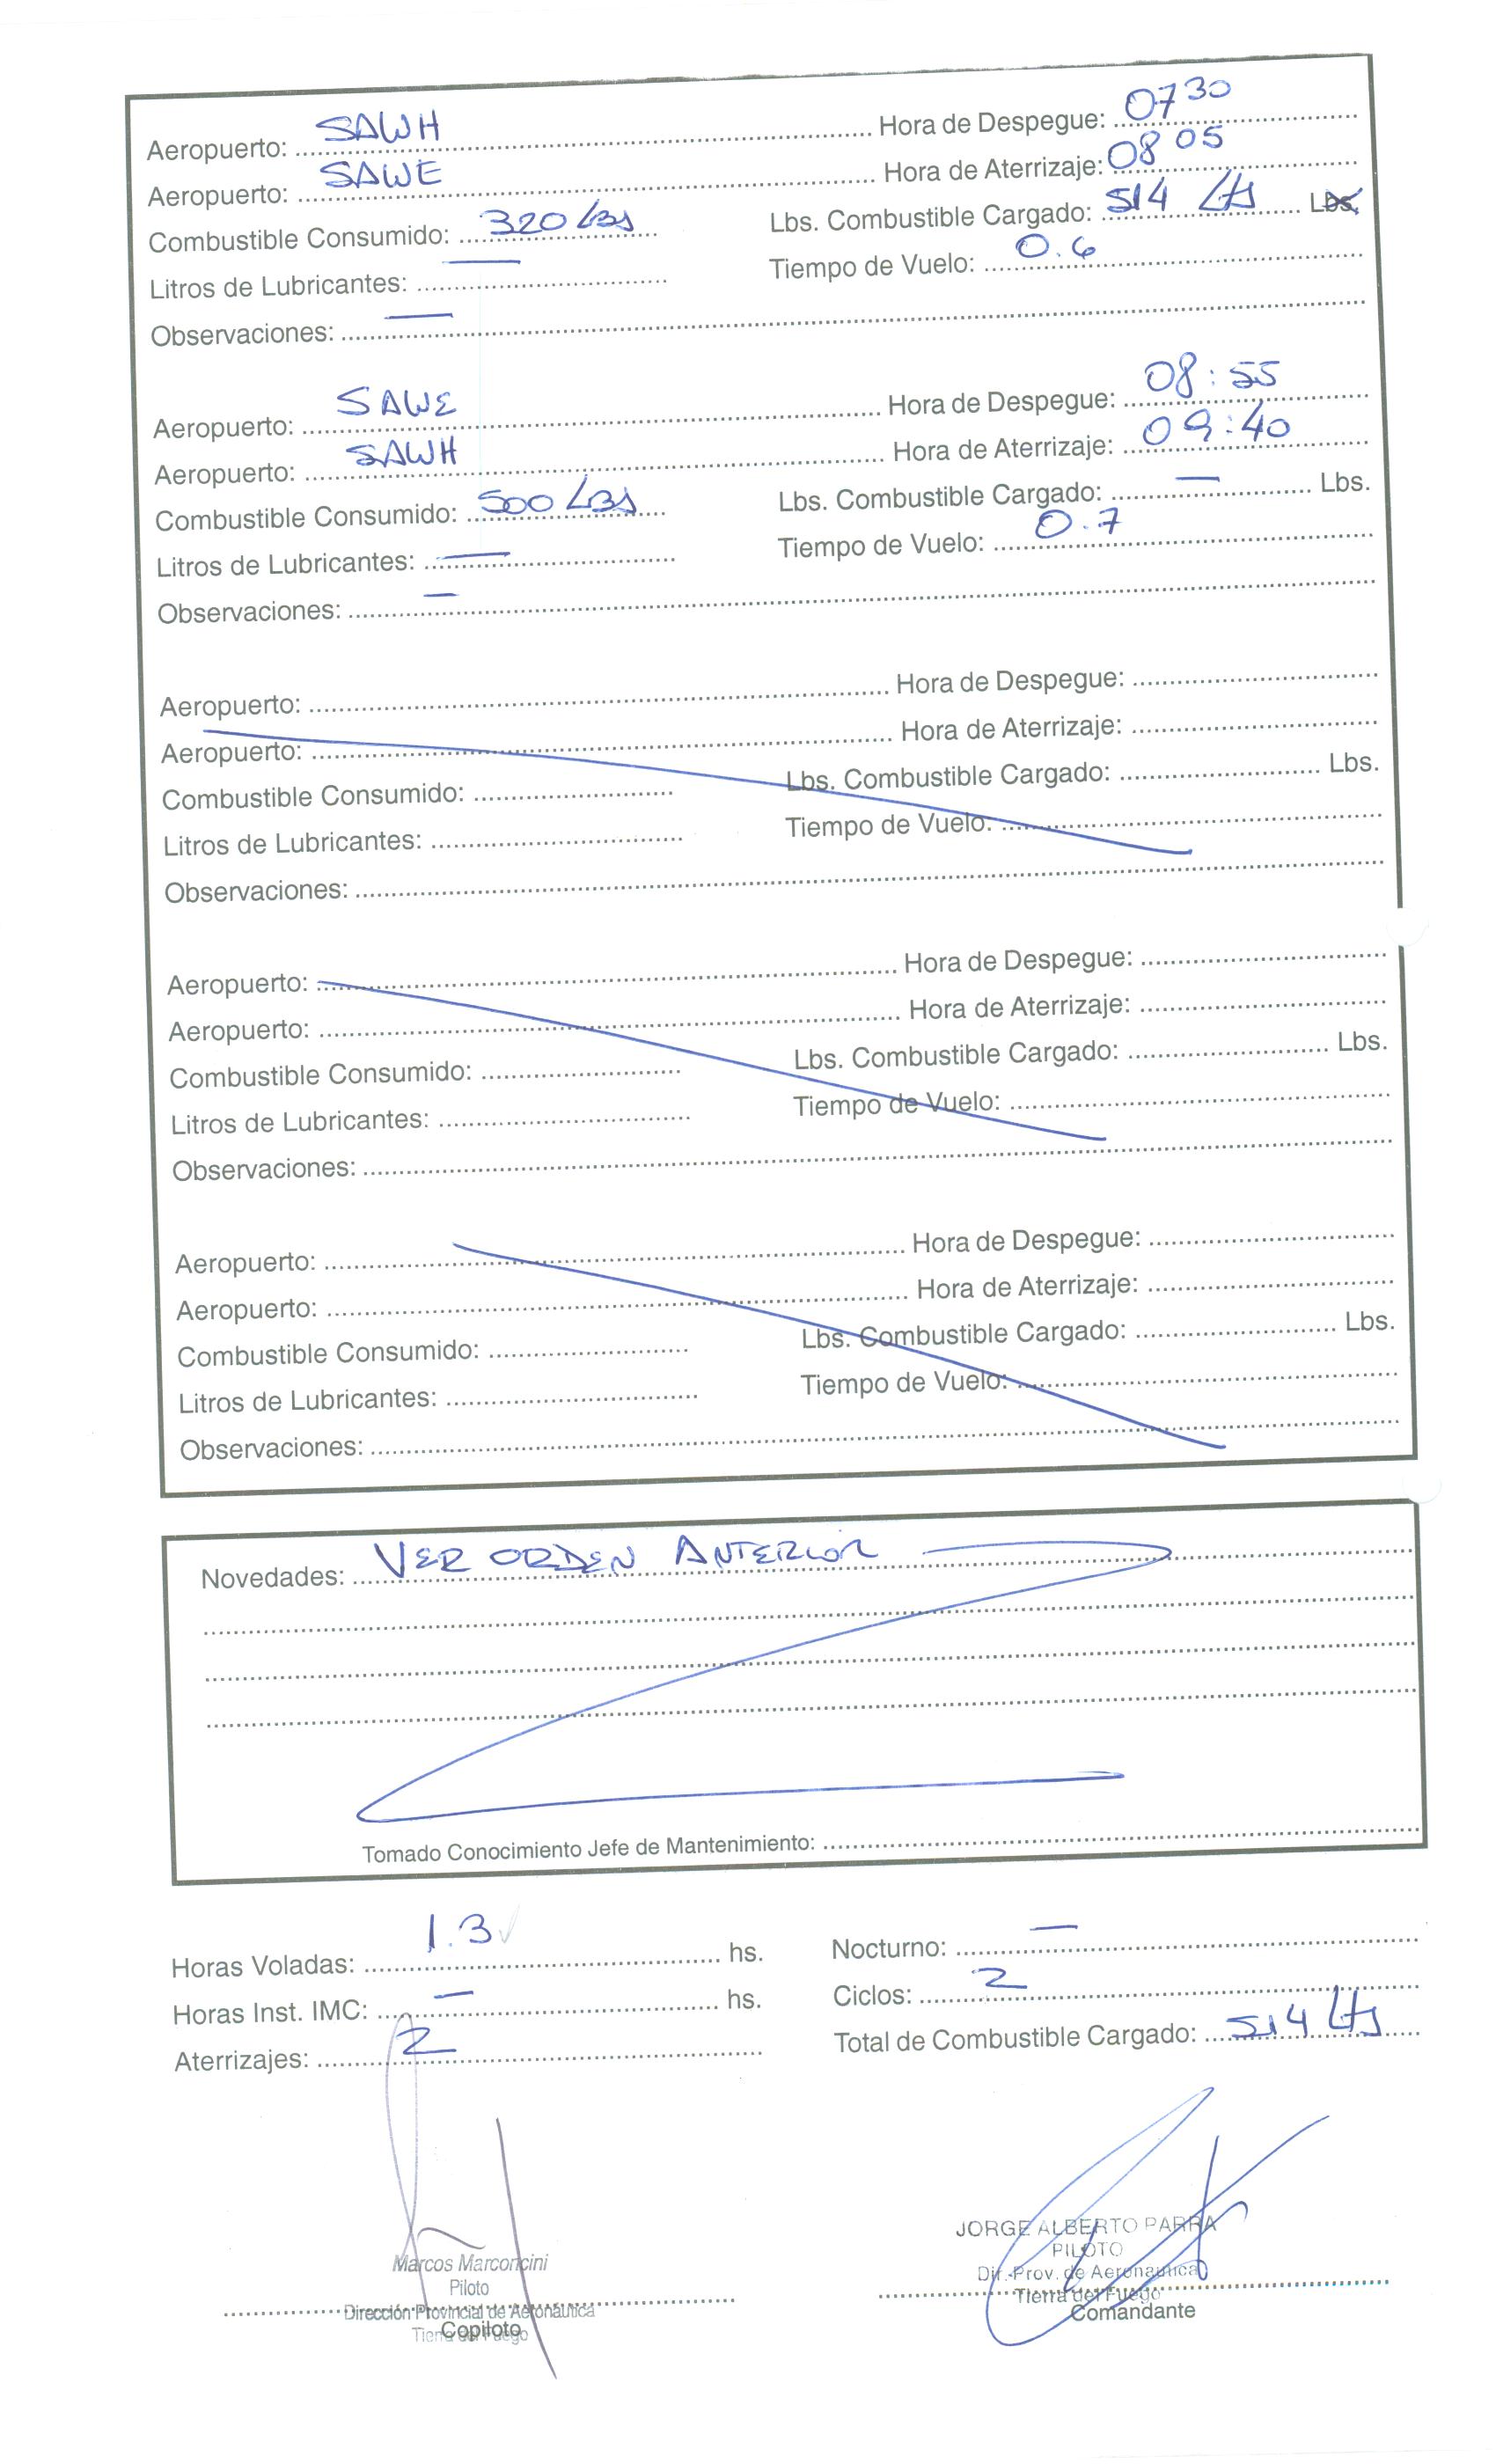 Aeropuerto: SAWH Hora de Despegue: 07 30
Aeropuerto: SAWE Hora de Aterrizaje: 08 05
Combustible Consumido: 320 Lbs Lbs. Combustible Cargado: 514 Lts Lbs.
Litros de Lubricantes: — Tiempo de Vuelo: 0.6
Observaciones: —
Aeropuerto: SAWE Hora de Despegue: 08:55
Aeropuerto: SAWH Hora de Aterrizaje: 09:40
Combustible Consumido: 500 Lbs Lbs. Combustible Cargado: — Lbs.
Litros de Lubricantes: — Tiempo de Vuelo: 0.7
Observaciones: —
Aeropuerto: Hora de Despegue:
Aeropuerto: Hora de Aterrizaje:
Combustible Consumido: Lbs. Combustible Cargado: Lbs.
Litros de Lubricantes: Tiempo de Vuelo:
Observaciones:
Aeropuerto: Hora de Despegue:
Aeropuerto: Hora de Aterrizaje:
Combustible Consumido: Lbs. Combustible Cargado: Lbs.
Litros de Lubricantes: Tiempo de Vuelo:
Observaciones:
Aeropuerto: Hora de Despegue:
Aeropuerto: Hora de Aterrizaje:
Combustible Consumido: Lbs. Combustible Cargado: Lbs.
Litros de Lubricantes: Tiempo de Vuelo:
Observaciones:
Novedades: VER ORDEN ANTERIOR
Tomado Conocimiento Jefe de Mantenimiento:
Horas Voladas: 1.3 hs. Nocturno: —
Horas Inst. IMC: — hs. Ciclos: 2
Aterrizajes: 2 Total de Combustible Cargado: 514 Lts
Marcos Marconcini
Piloto
Dirección Provincial de Aeronáutica
Tierra del Fuego
Copiloto
JORGE ALBERTO PARRA
PILOTO
Dir. Prov. de Aeronautica
Tierra del Fuego
Comandante